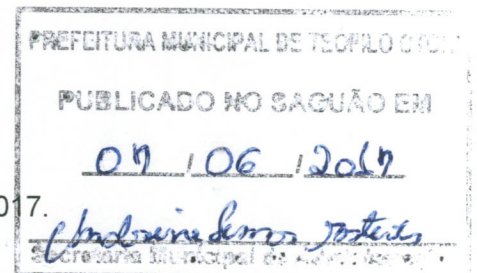 PREFEITURA MUNICIPAL DE TEOFILO OTONI
PUBLICADO NO SAGUÃO EM
07 / 06 / 2017
017.
Secretaria Municipal de